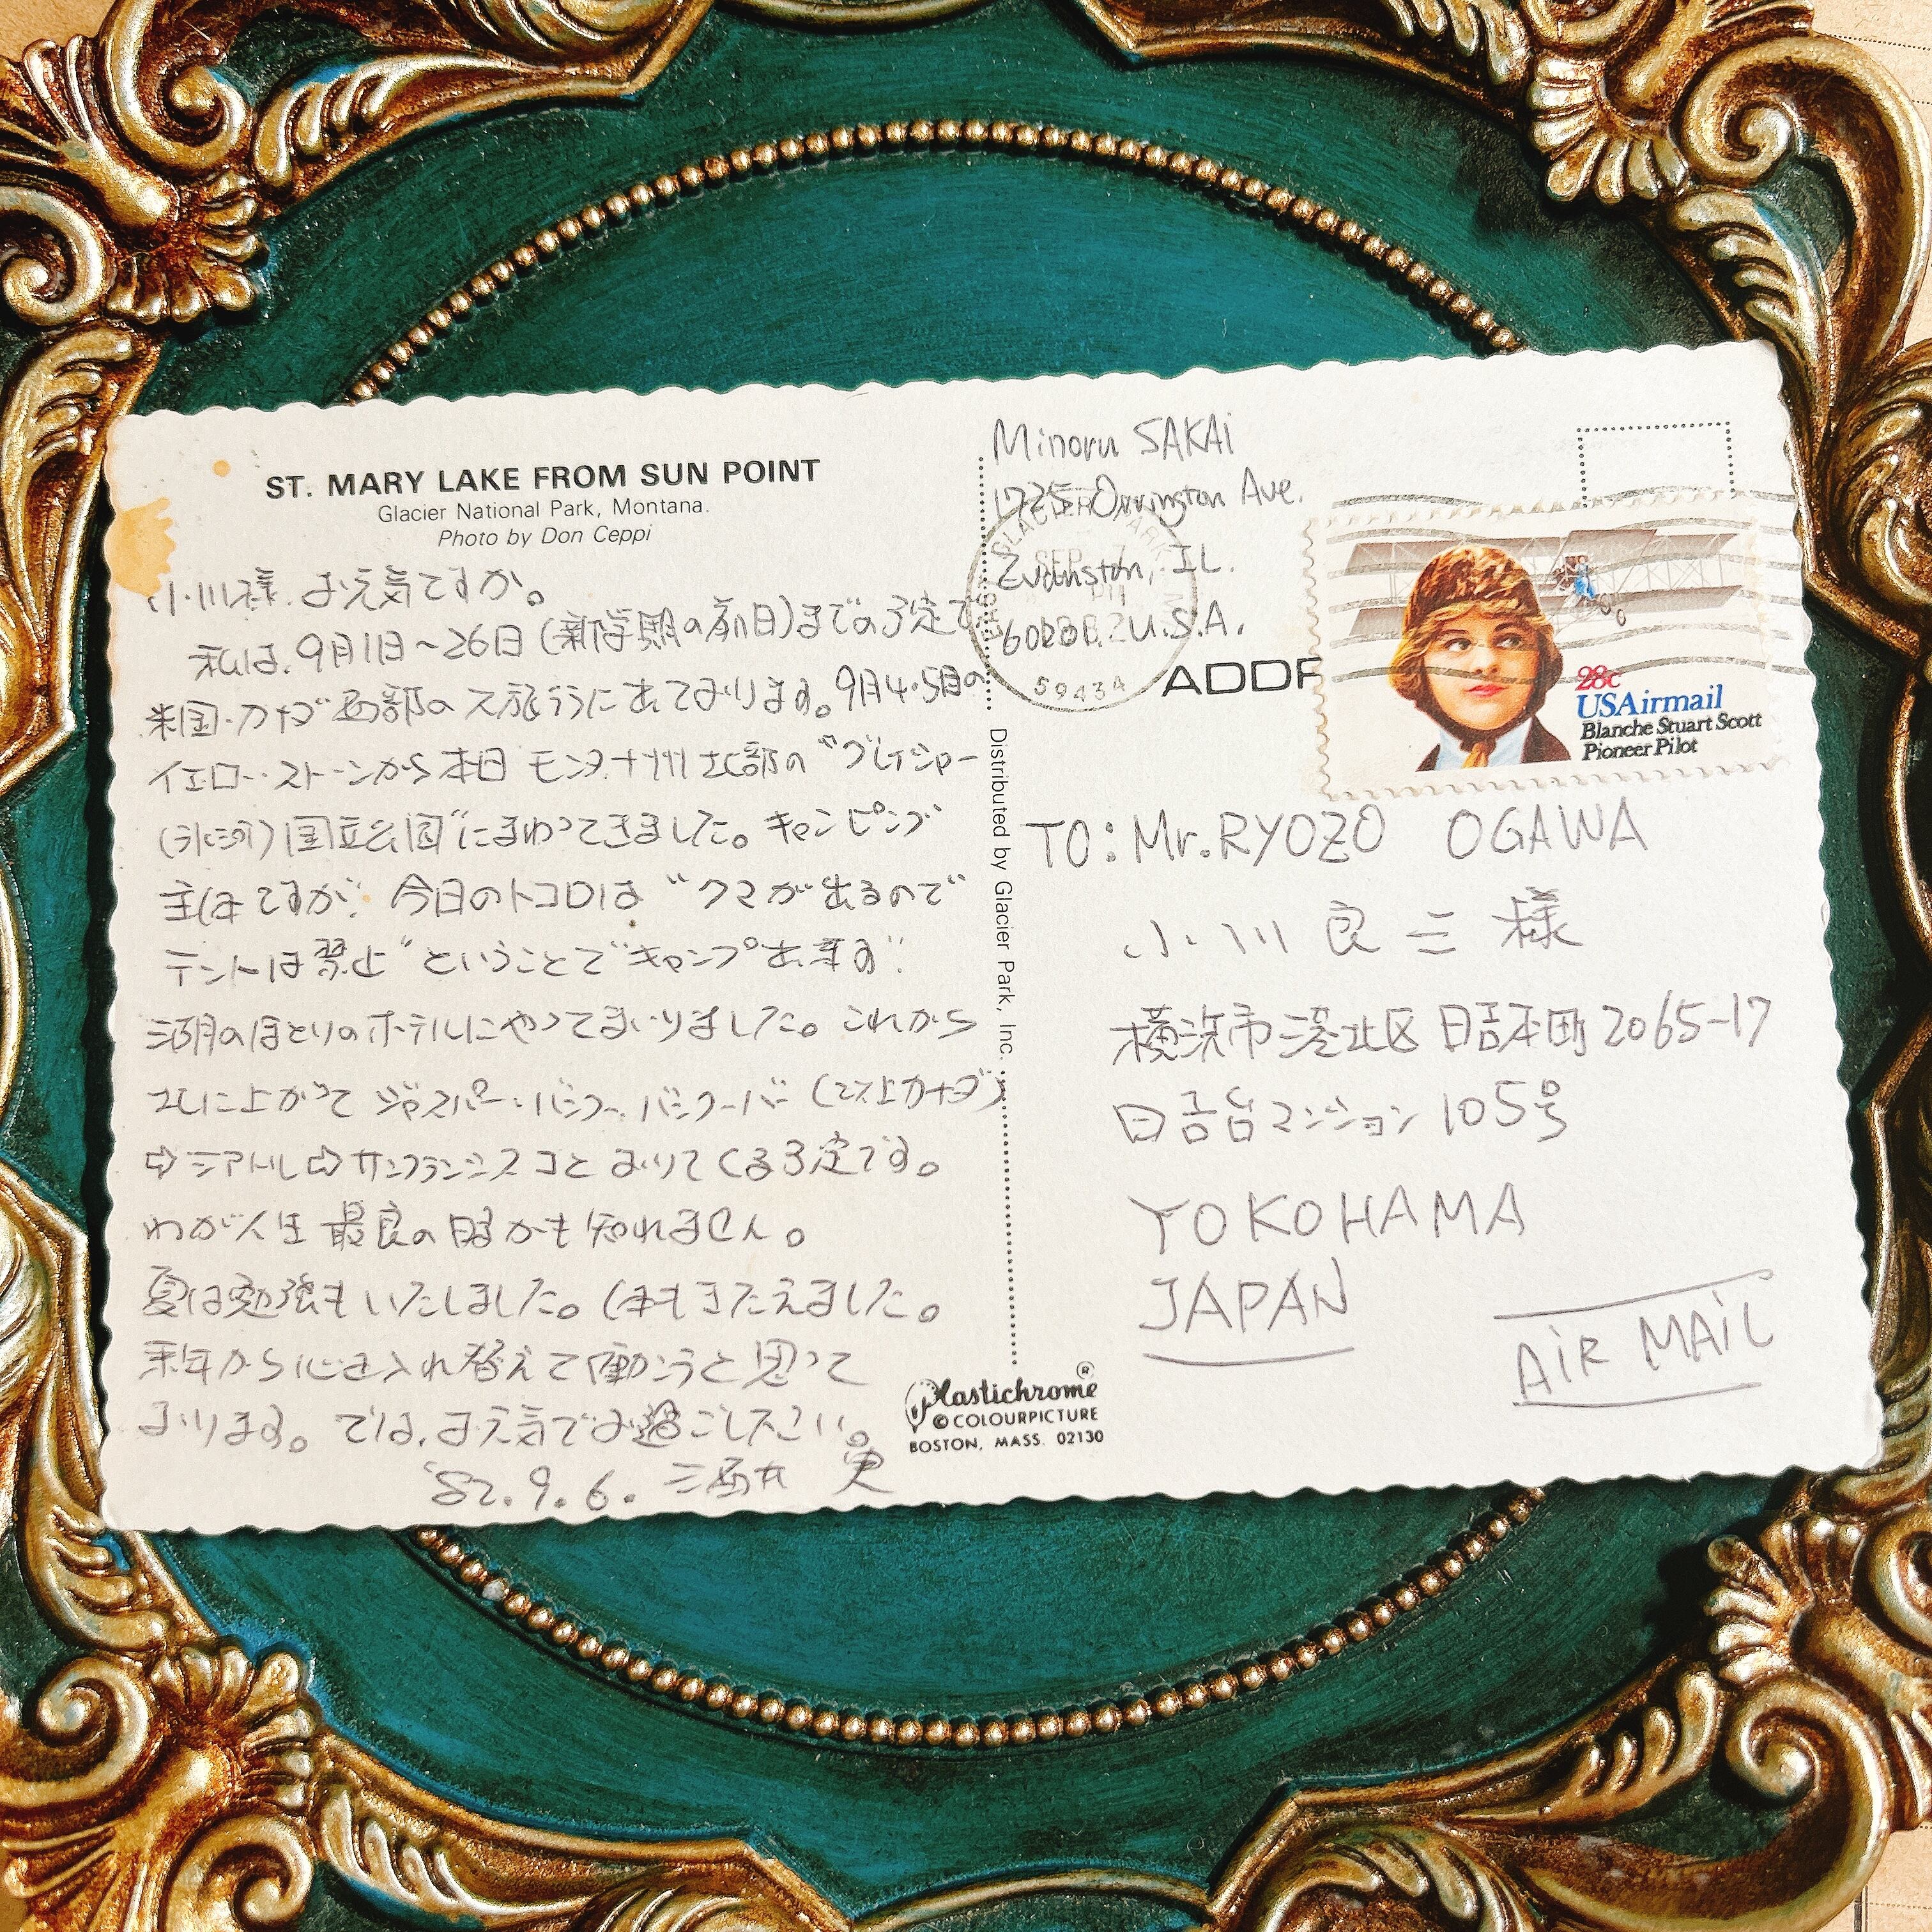 ST. MARY LAKE FROM SUN POINT
Glacier National Park, Montana.
Photo by Don Ceppi
小川様、お元気ですか。
私は、9月1日~26日(新学期の前日)までの予定で
米国・カナダ西部の大旅行に出ております。9月4・5日の
イエローストーンから本日モンタナ州北部の“グレイシャー
(氷河)国立公園”にまわってきました。キャンピング
主体ですが、今日のトコロは“クマが出るので
テントは禁止”ということで“キャンプ出来ず”
湖のほとりのホテルにやってまいりました。これから
北に上がってジャスパー・バンフ・バンクーバー(以上カナダ)
⇨シアトル⇨サンフランシスコとおりてくる予定です。
わが人生最良の時かも知れません。
夏は勉強もいたしました。体もきたえました。
来年から心を入れ替えて働こうと思って
おります。では、お元気でお過ごし下さい。
'82.9.6. 酒井 実
Minoru SAKAI
1725 Orrington Ave.
Evanston, IL.
60201. U.S.A.
GLACIER PARK
SEP 7
59434
ADDR
28c
USAirmail
Blanche Stuart Scott
Pioneer Pilot
TO: Mr. RYOZO OGAWA
小川良三様
横浜市港北区日吉本町2065-17
日吉台マンション105号
YOKOHAMA
JAPAN
AIR MAIL
Distributed by Glacier Park, Inc.
Plastichrome®
© COLOURPICTURE
BOSTON, MASS. 02130